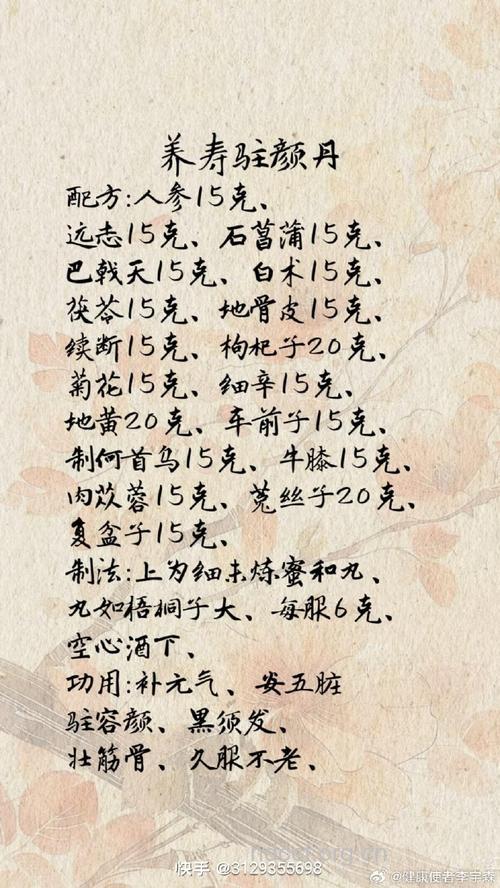 养寿驻颜丹
配方:人参15克、
远志15克、石菖蒲15克、
巴戟天15克、白术15克、
茯苓15克、地骨皮15克、
续断15克、枸杞子20克、
菊花15克、细辛15克、
地黄20克、车前子15克、
制何首乌15克、牛膝15克、
肉苁蓉15克、菟丝子20克、
复盆子15克、
制法:上为细末炼蜜和丸、
丸如梧桐子大、每服6克、
空心酒下、
功用:补元气、安五脏
驻容颜、黑须发、
壮筋骨、久服不老、
快手 @3129355698
@健康使者李宇森